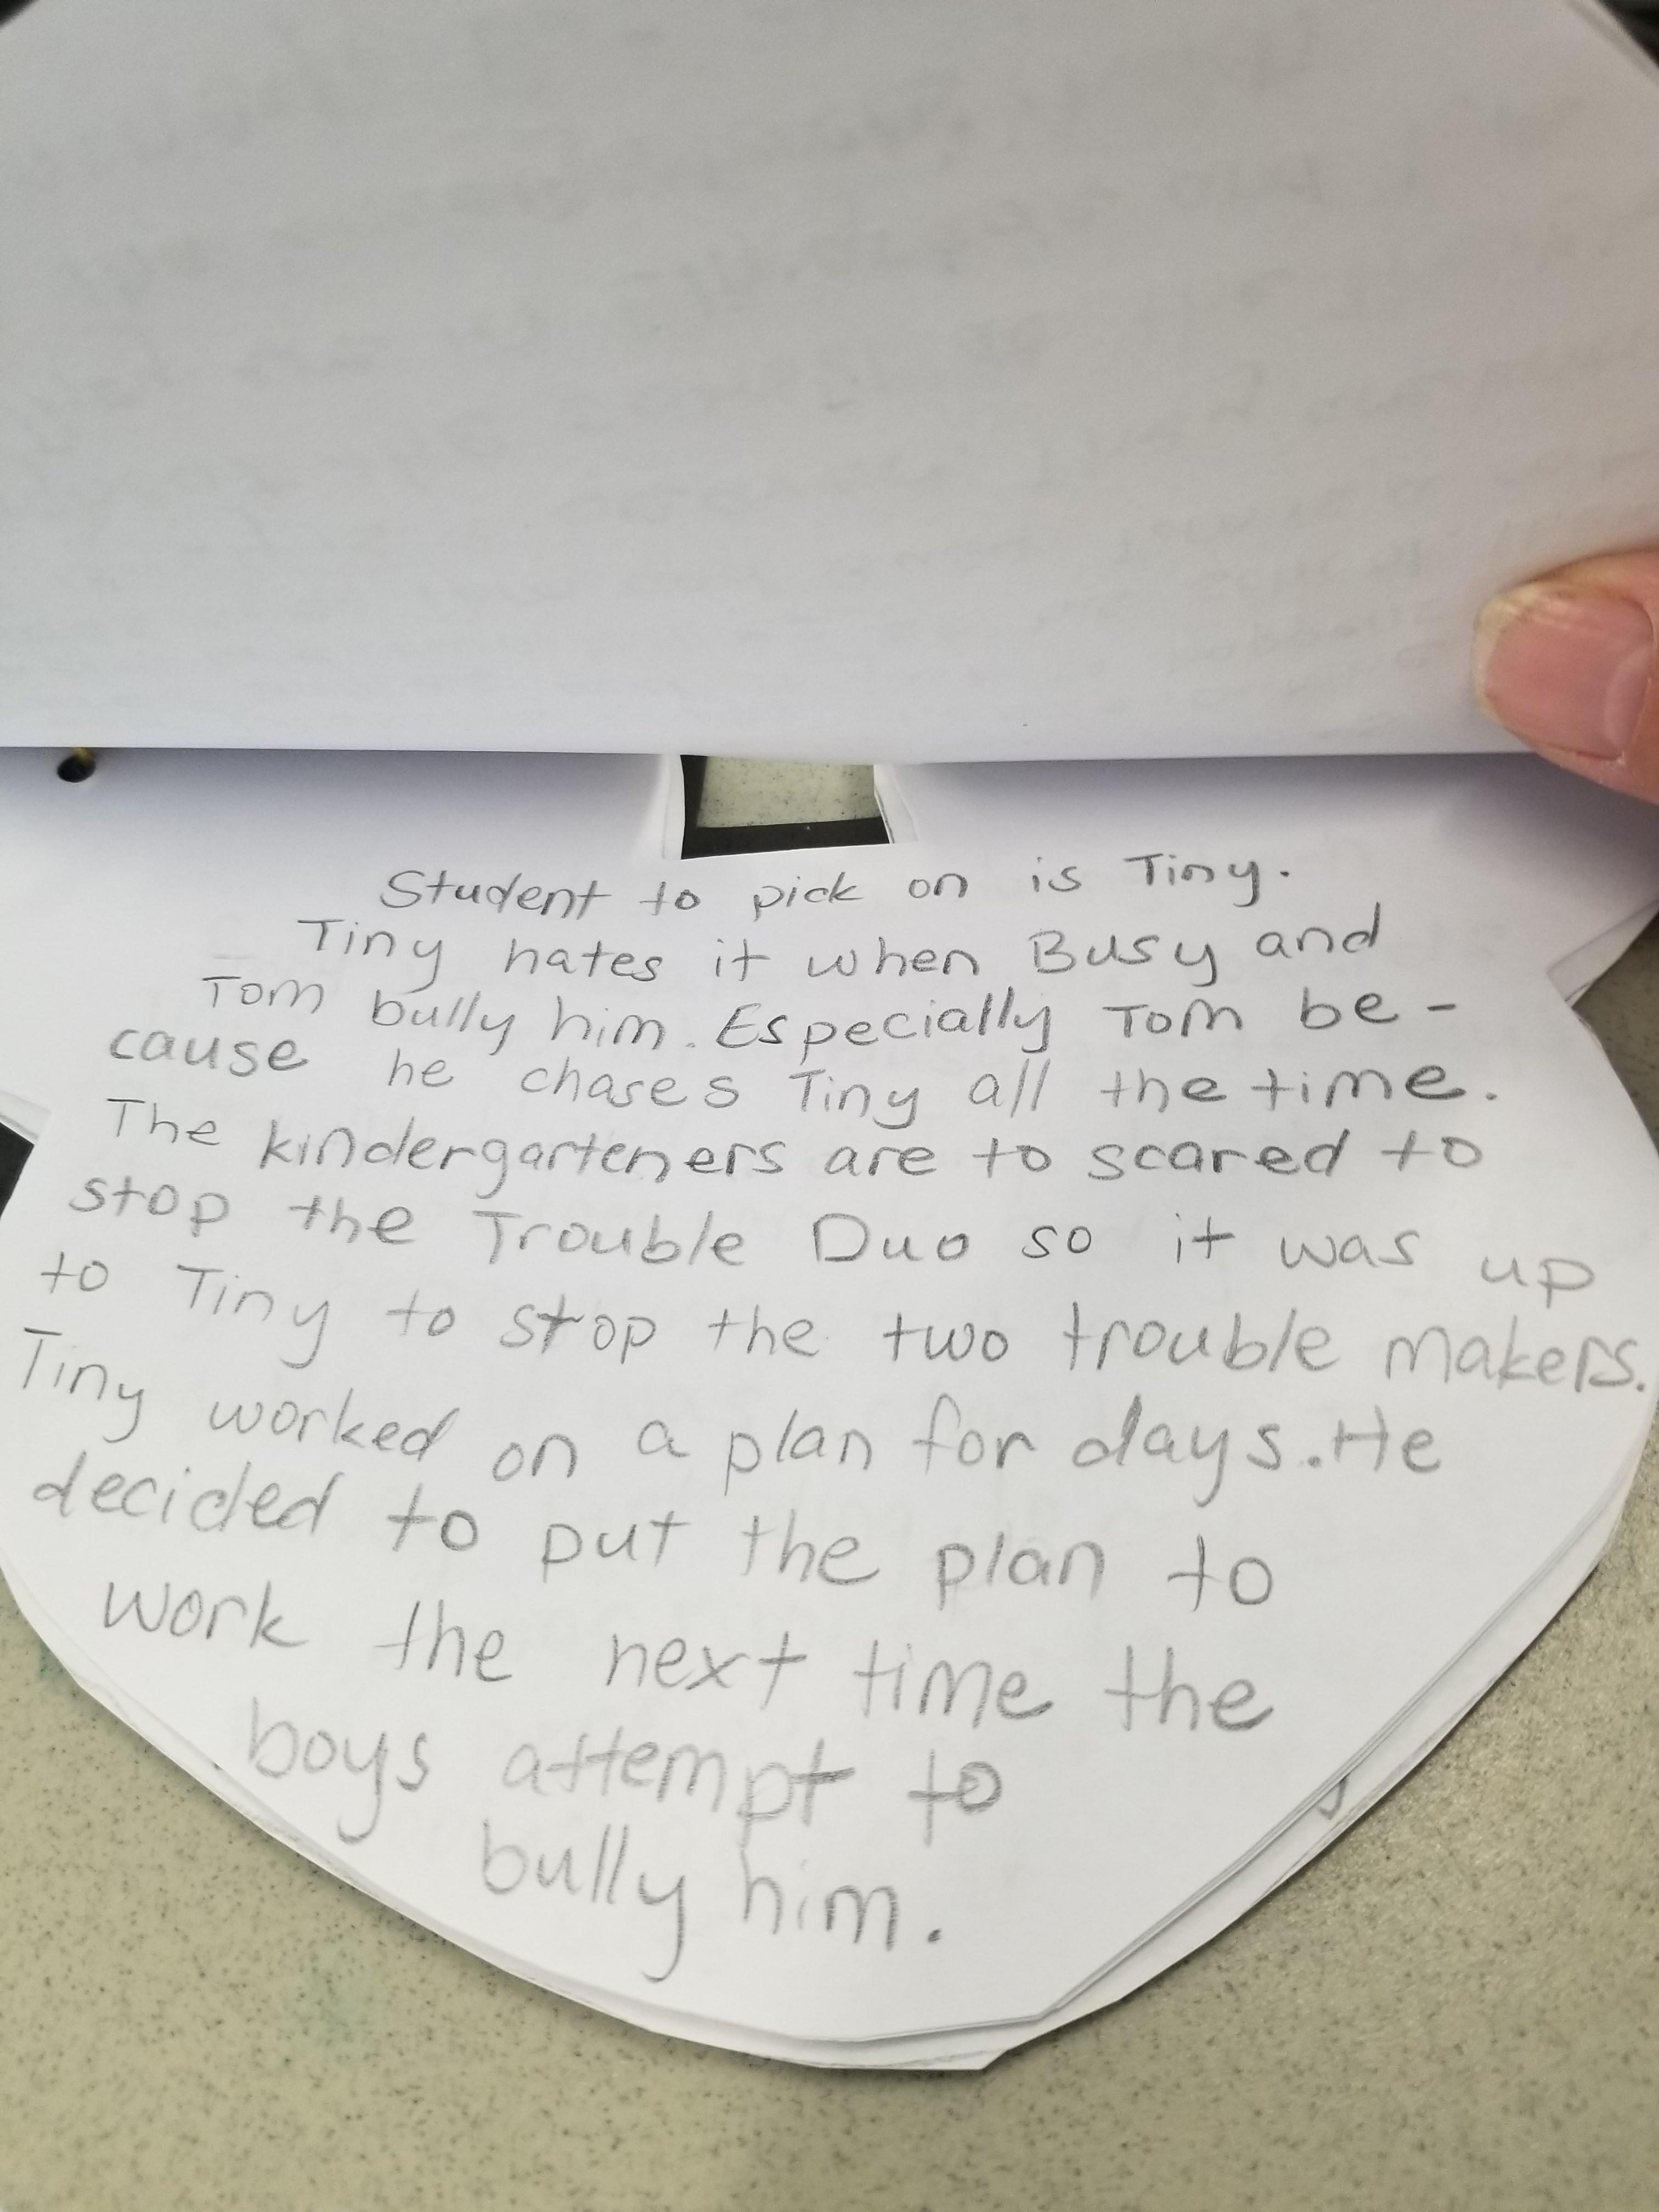 Student to pick on is Tiny.
Tiny hates it when Busy and
Tom bully him. Especially Tom be-
cause he chases Tiny all the time.
The kindergarteners are to scared to
stop the Trouble Duo so it was up
to Tiny to stop the two trouble makers.
Tiny worked on a plan for days. He
decided to put the plan to
work the next time the
boys attempt to
bully him.